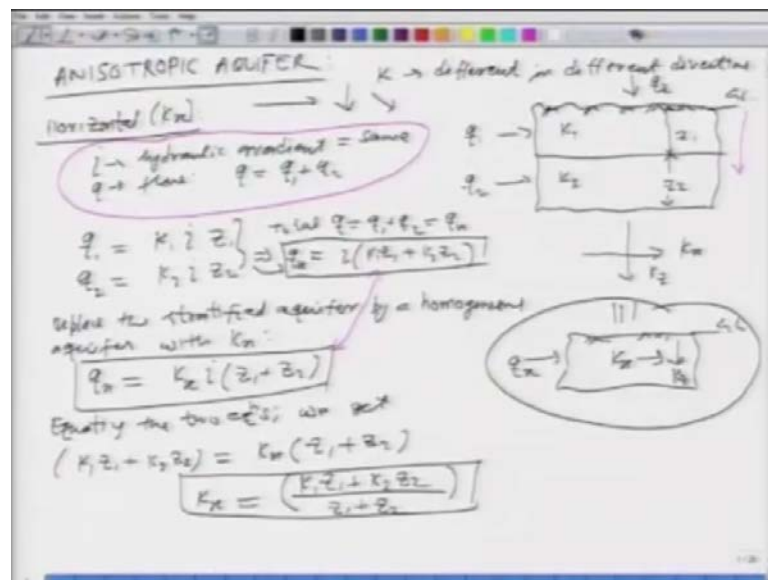 ANISOTROPIC AQUIFER:
K → different in different direction
Horizontal (Kx)
i → hydraulic gradient = same
q → flow q = q1 + q2
q1 = K1 i z1
q2 = K2 i z2
Total q = q1 + q2 = qx
qx = i (K1z1 + K2z2)
replace the stratified aquifer by a homogeneous
aquifer with Kx:
qx = Kx i (z1 + z2)
Equating the two eq's; we get
(K1z1 + K2z2) = Kx (z1 + z2)
Kx = (K1z1 + K2z2 / z1 + z2)
qz
GL
q1 → K1 z1
q2 → K2 z2
Kx
Kz
GL
qx → Kx →